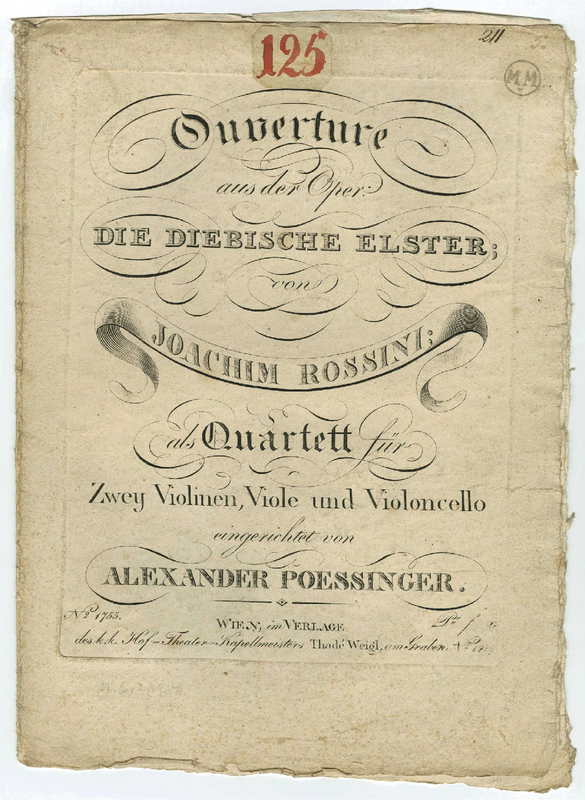 125
211
M.M
Ouverture
aus der Oper:
DIE DIEBISCHE ELSTER;
von
JOACHIM ROSSINI;
als Quartett für
Zwey Violinen, Viole und Violoncello
eingerichtet von
ALEXANDER POESSINGER.
No 1755.
WIEN, im VERLAGE
des k.k. Hof-Theater-Kapellmeisters Thadé Weigl, am Graben.